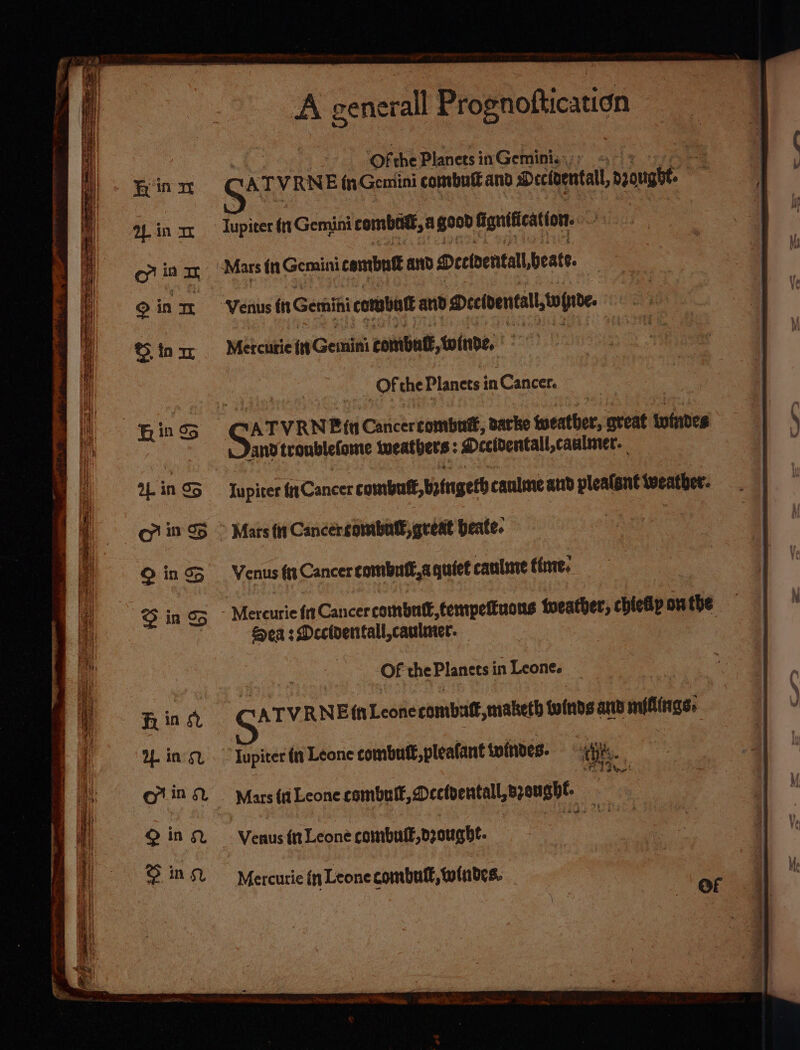 A generall Prognostication
Of the Planets in Gemini.
♄ in ♊ SATVRNE in Gemini combust and Occidentall, drought.
♃ in ♊ Iupiter in Gemini combust, a good signification.
♂ in ♊ Mars in Gemini combust and Occidentall, heate.
♀ in ♊ Venus in Gemini combust and Occidentall, winde.
☿ in ♊ Mercurie in Gemini combust, winde.
Of the Planets in Cancer.
♄ in ♋ SATVRNE in Cancer combust, darke weather, great windes
and troublesome weathers: Occidentall, caulmer.
♃ in ♋ Iupiter in Cancer combust, bringeth caulme and pleasant weather.
♂ in ♋ Mars in Cancer combust, great heate.
♀ in ♋ Venus in Cancer combust, a quiet caulme time.
☿ in ♋ Mercurie in Cancer combust, tempestuous weather, chiefly on the
Sea: Occidentall, caulmer.
Of the Planets in Leone.
♄ in ♌ SATVRNE in Leone combust, maketh winds and mislings.
♃ in ♌ Iupiter in Leone combust, pleasant windes.
♂ in ♌ Mars in Leone combust, Occidentall, drought.
♀ in ♌ Venus in Leone combust, drought.
☿ in ♌ Mercurie in Leone combust, windes.
Of